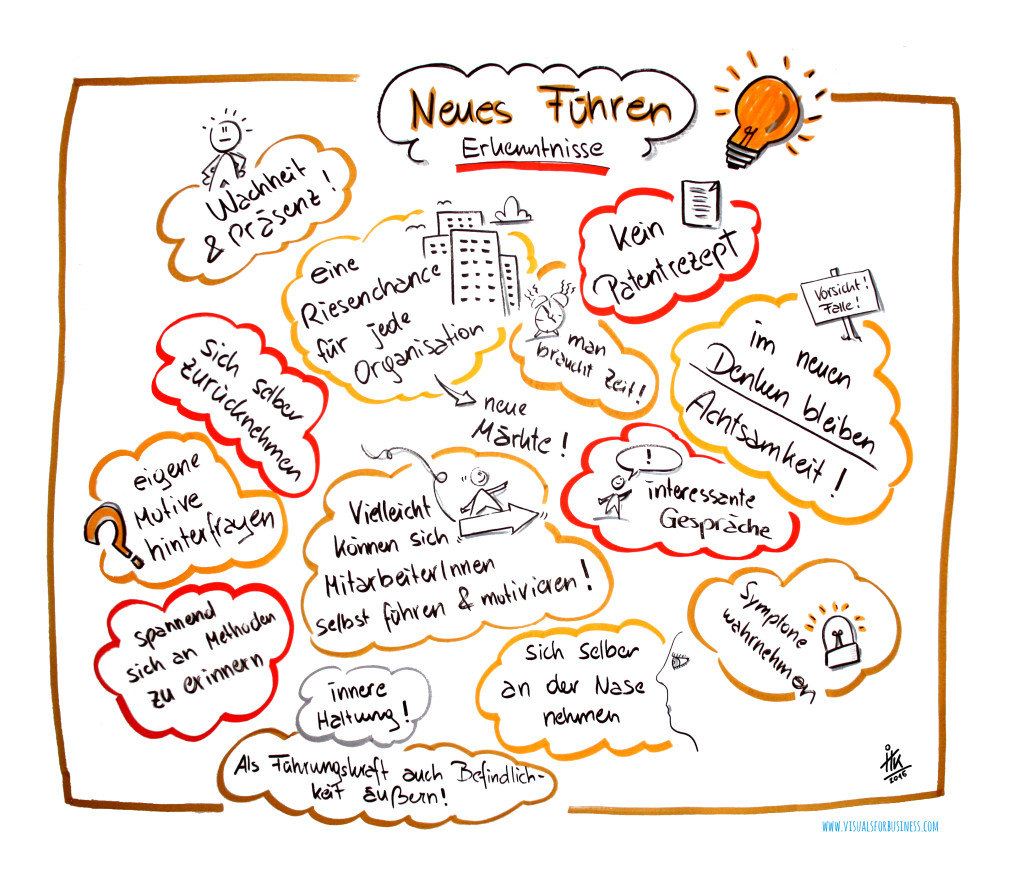 Neues Führen
Erkenntnisse
Wachheit
& Präsenz!
eine
Riesenchance
für jede
Organisation
neue
Märkte!
man
braucht Zeit!
kein
Patentrezept
Vorsicht!
Falle!
im neuen
Denken bleiben
Achtsamkeit!
sich selber
zurücknehmen
eigene
Motive
hinterfragen
Vielleicht
können sich
MitarbeiterInnen
selbst führen & motivieren!
!
interessante
Gespräche
spannend
sich an Methoden
zu erinnern
innere
Haltung!
sich selber
an der Nase
nehmen
Symptone
wahrnehmen
Als Führungskraft auch Befindlich-
keit äußern!
itk
2016
www.visualsforbusiness.com